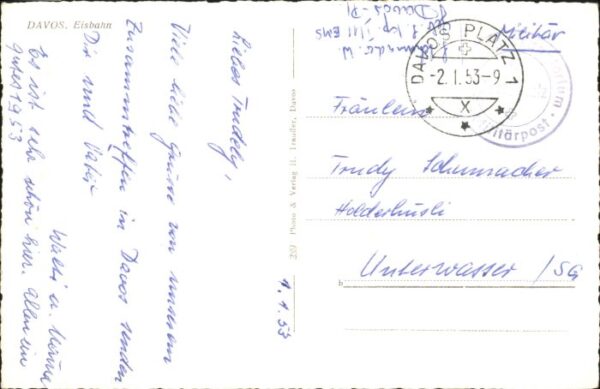 DAVOS. Eisbahn
1.1.53
Liebes Trudely,
Viele liebe Grüsse von unserem
Zusammentreffen in Davos senden
Dir und Vati
Walti u.
Es ist sehr schön hier. Allen ein
gutes 1953
Photo & Verlag H. Trauffer, Davos
Davos-Pl
Militär
DAVOS PLATZ 1
-2.1.53-9
X
Militärpost
Fräulein
Trudy Schumacher
Holderhüsli
Unterwasser /SG
b